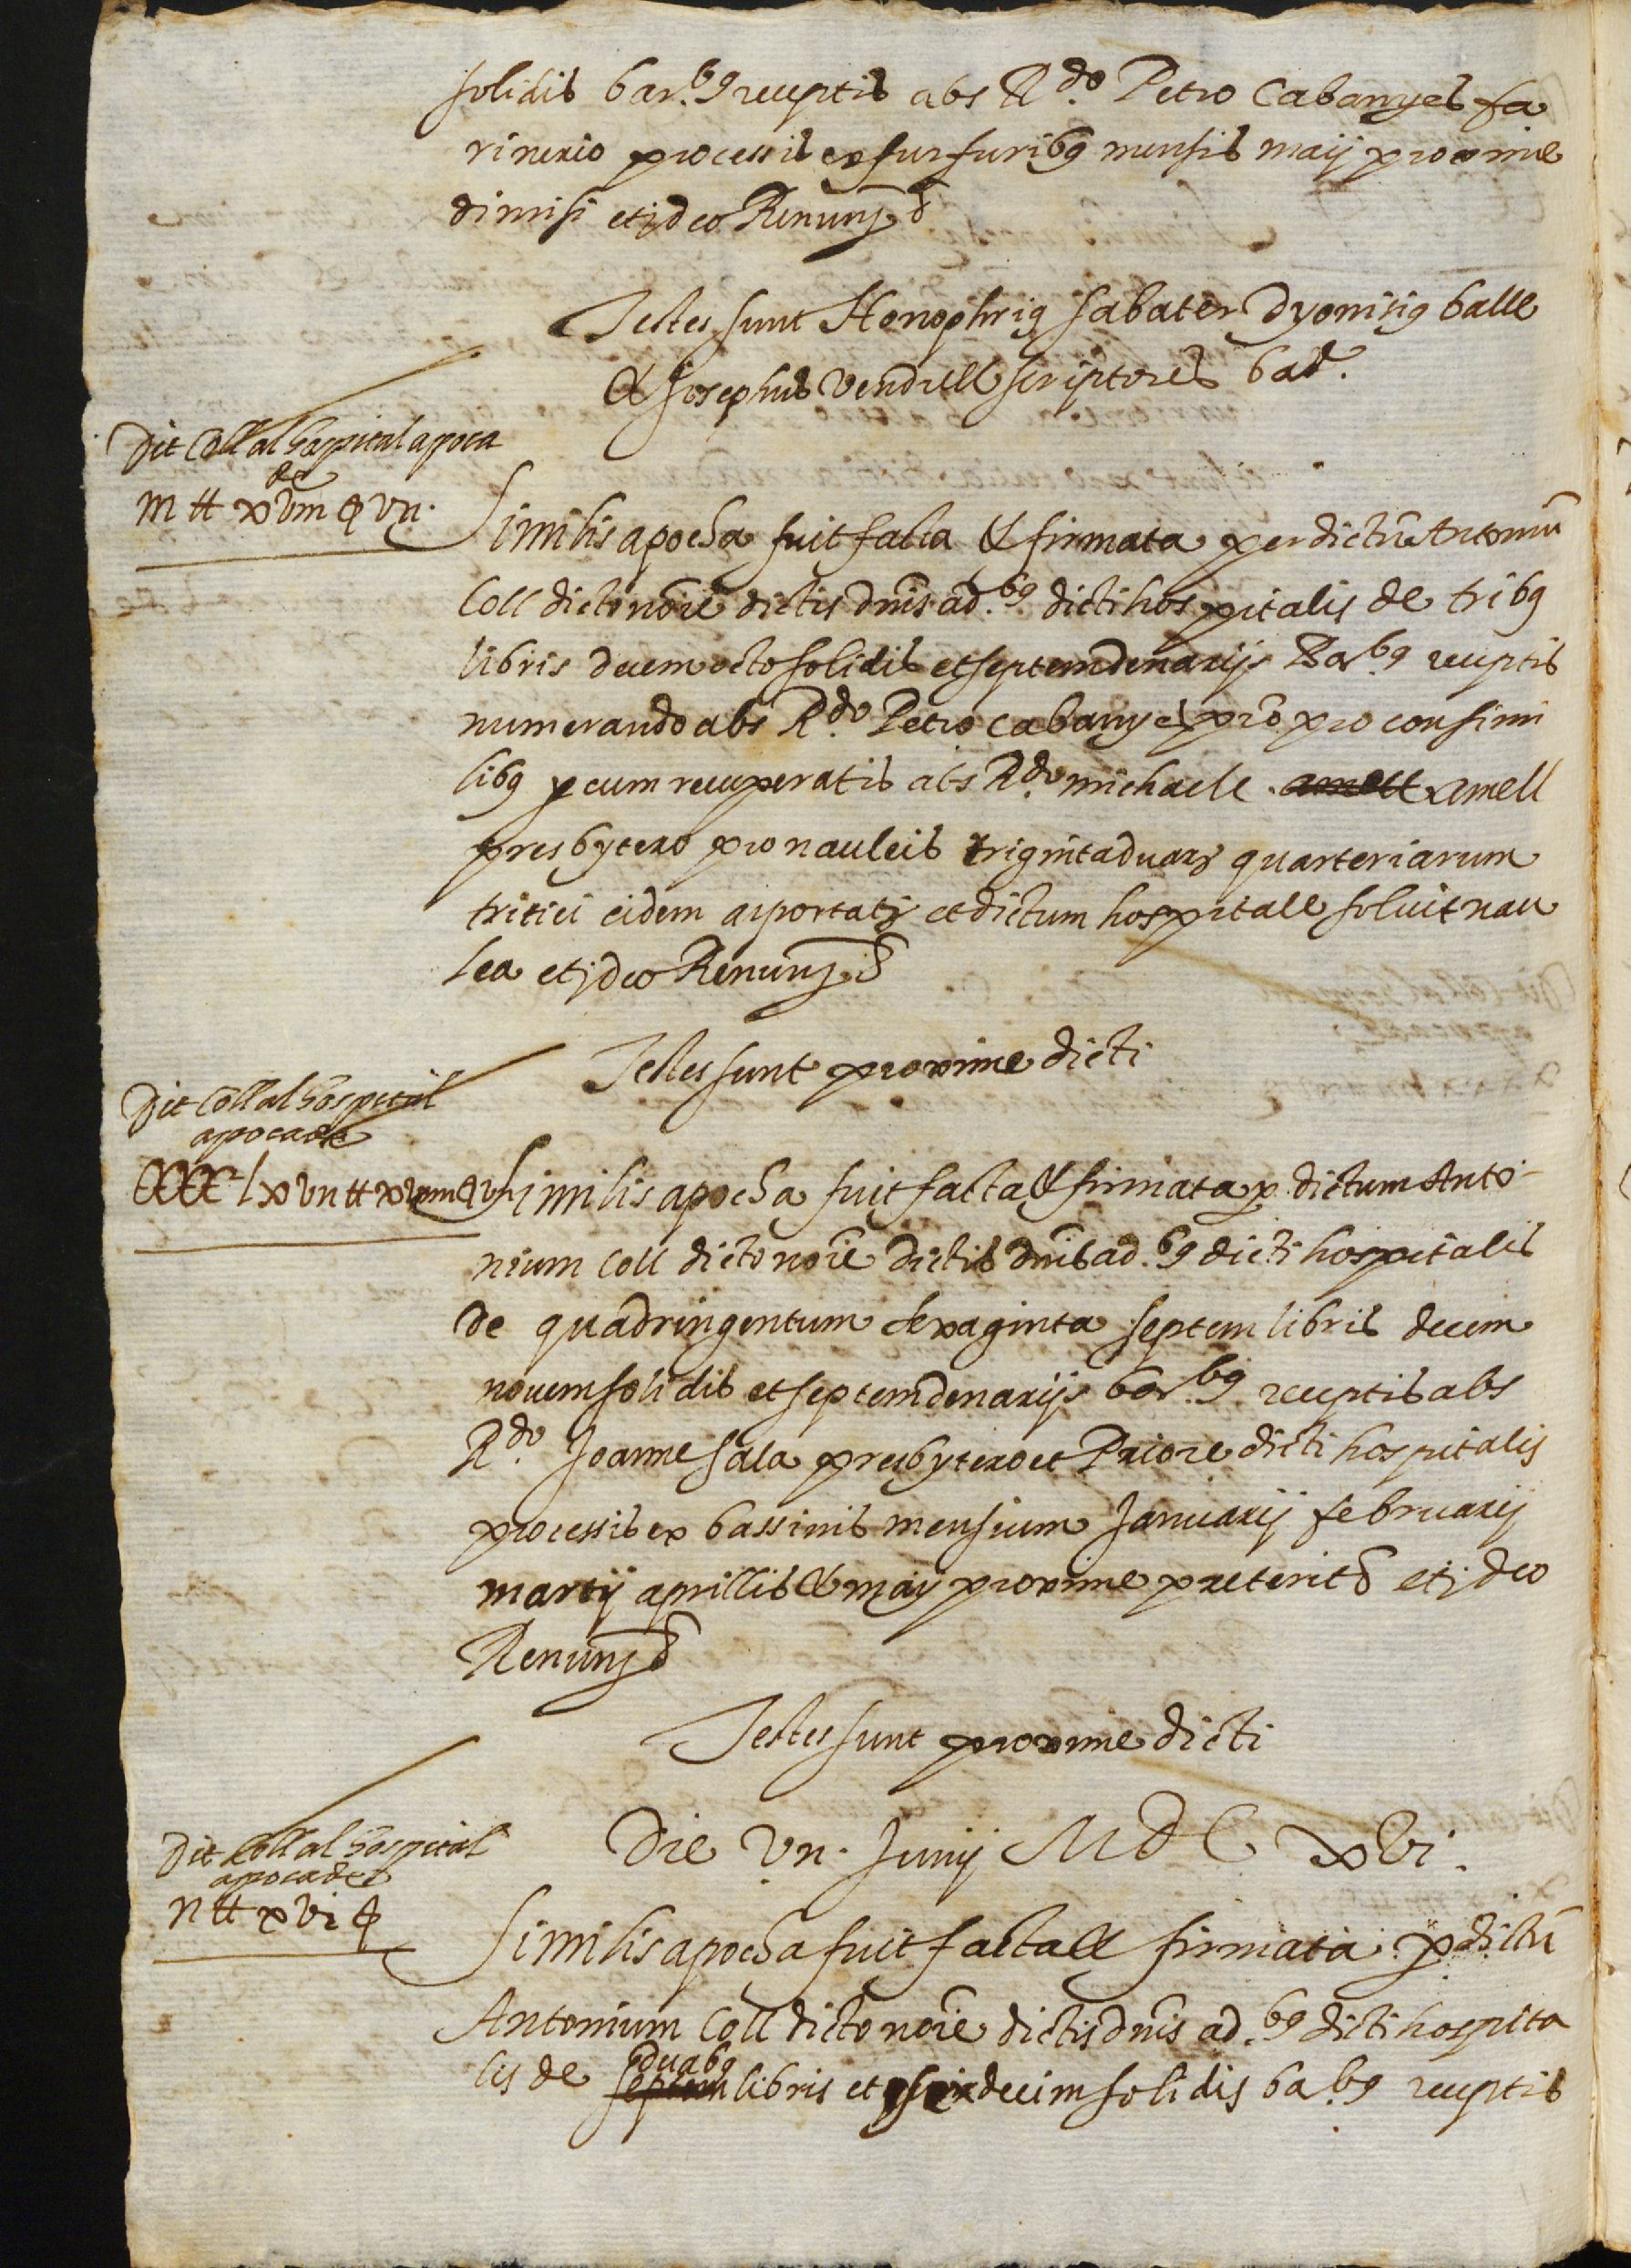 solidis bar.bꝯ receptis abs R.do Petro Cabanyes fa
rinerio processis ex furfuribꝯ mensis maij proxime
dimisi et ideo Renunꝫ &
Testes sunt Honophriꝯ Sabater Dyonisiꝯ balle
& Josephus Vendrell scriptores bar.
Dit Coll al hospital apoca
de
iii ₶ xviii ẜ vii.
Similis apocha fuit facta & firmata per dictū Antoniū
Coll dicto noīe dictis dnīs ad.bꝯ dicti hospitalis de tribꝯ
libris decem octo solidis et septem denarijs Bar.bꝯ receptis
numerando abs R.do Petro Cabanyes pro pro consimi
libꝯ per eum recuperatis abs R.do michaele amell amell
presbytero pro nauleis triginta duarꝫ quarteriarum
tritici eidem aportatꝫ et dictum hospitale soluit nau
lea et ideo Renunꝫ &
Testes sunt proxime dicti
Dit Coll al hospital
apoca de
CCCC lxvii ₶ xviiii ẜ vii
Similis apocha fuit facta & firmata ꝑ dictum Anto
nium Coll dicto noīe dictis dnīs ad.bꝯ dicti hospitalis
de quadringentum sexaginta septem libris decem
novem solidis et septem denarijs bar.bꝯ receptis abs
R.do Joanne Sala presbytero et Priore dicti hospitalis
processis ex bassinis mensium Januarij februarij
martij aprillis & maij proxime preterit& et ideo
Renunꝫ &
Testes sunt proxime dicti
Die vii. Junij MDC xvi.
Dit Coll al hospital
apoca de
ii ₶ xvi ẜ
Similis apocha fuit facta & firmata ꝑ dictū
Antonium Coll dicto noīe dictis dnīs ad.bꝯ dicti hospita
duabꝯ
lis de septem libris et sexdecim solidis ba.bꝯ receptis